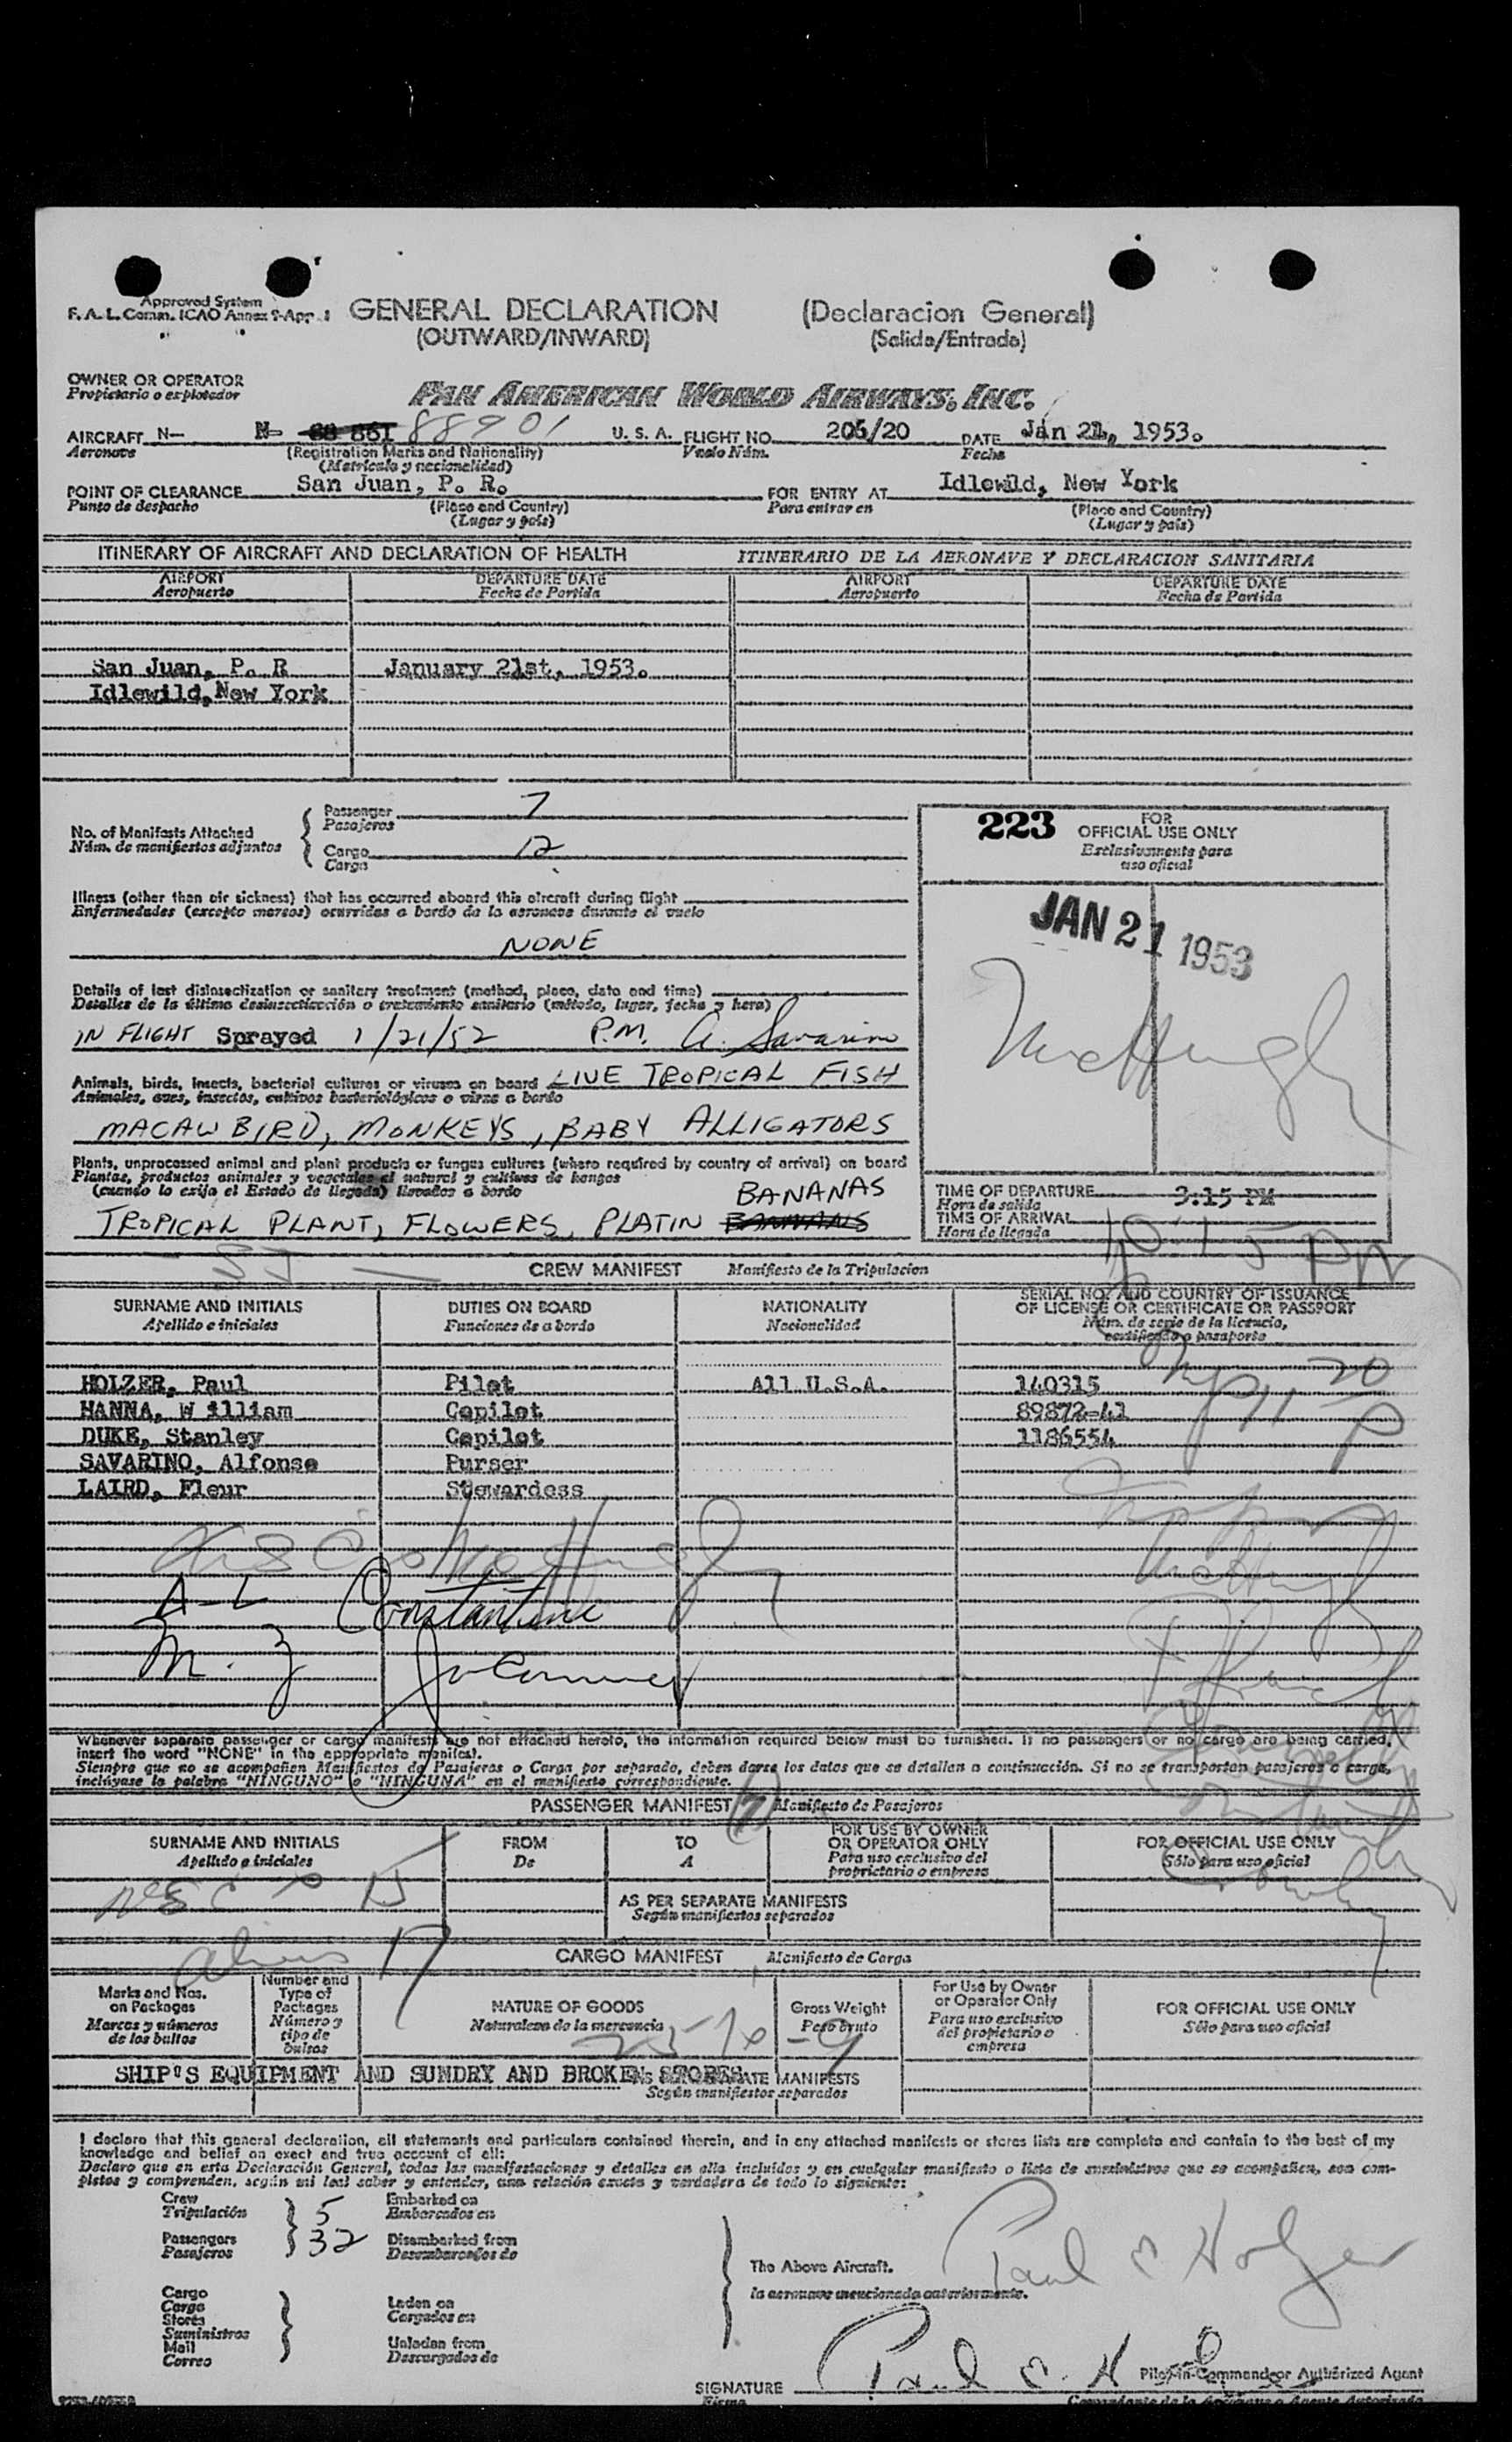 Approved System
F. A. L. Comm. ICAO Annex 9-App. 1
GENERAL DECLARATION (Declaracion General)
(OUTWARD/INWARD) (Salida/Entrada)
OWNER OR OPERATOR
Propietario o explotador
PAN AMERICAN WORLD AIRWAYS, INC.
AIRCRAFT N- N- 88901 U. S. A. FLIGHT NO. 206/20 DATE Jan 21, 1953.
Aeronave (Registration Marks and Nationality) Vuelo Núm. Fecha
(Matricula y nacionalidad)
POINT OF CLEARANCE San Juan, P. R. FOR ENTRY AT Idlewild, New York
Punto de despacho (Place and Country) Para entrar en (Place and Country)
(Lugar y país) (Lugar y país)
ITINERARY OF AIRCRAFT AND DECLARATION OF HEALTH ITINERARIO DE LA AERONAVE Y DECLARACION SANITARIA
AIRPORT DEPARTURE DATE AIRPORT DEPARTURE DATE
Aeropuerto Fecha de Partida Aeropuerto Fecha de Partida
San Juan, P. R January 21st, 1953.
Idlewild, New York
No. of Manifests Attached
Núm. de manifiestos adjuntos
Passenger 7
Pasajeros
Cargo 12
Carga
223 FOR
OFFICIAL USE ONLY
Exclusivamente para
uso oficial
Illness (other than air sickness) that has occurred aboard this aircraft during flight
Enfermedades (excepto mareos) ocurridas a bordo de la aeronave durante el vuelo
NONE
JAN 21 1953
McHugh
Details of last disinsectization or sanitary treatment (method, place, date and time)
Detalles de la última desinsectización o tratamiento sanitario (método, lugar, fecha y hora)
IN FLIGHT Sprayed 1/21/52 P.M. A. Savarino
Animals, birds, insects, bacterial cultures or viruses on board LIVE TROPICAL FISH
Animales, aves, insectos, cultivos bacteriológicos o virus a bordo
MACAW BIRD, MONKEYS, BABY ALLIGATORS
Plants, unprocessed animal and plant products or fungus cultures (where required by country of arrival) on board
Plantas, productos animales y vegetales al natural y cultivos de hongos
(cuando lo exija el Estado de llegada) llevados a bordo
BANANAS
TROPICAL PLANT, FLOWERS, PLATIN
TIME OF DEPARTURE 3:15 PM
Hora de salida
TIME OF ARRIVAL 10:15 PM
Hora de llegada
CREW MANIFEST Manifiesto de la Tripulacion
SURNAME AND INITIALS DUTIES ON BOARD NATIONALITY SERIAL NO. AND COUNTRY OF ISSUANCE
OF LICENSE OR CERTIFICATE OR PASSPORT
Apellido e iniciales Funciones de a bordo Nacionalidad Núm. de serie de la licencia,
certificado o pasaporte
HOLZER, Paul Pilot All U.S.A. 140315
HANNA, W illiam Copilot 89872-41
DUKE, Stanley Copilot 1186554
SAVARINO, Alfonse Purser
LAIRD, Fleur Stewardess
McHugh
A-L Constantine
M. Z
McHugh
Whenever separate passenger or cargo manifests are not attached hereto, the information required below must be furnished. If no passengers or no cargo are being carried,
insert the word "NONE" in the appropriate manifest.
Siempre que no se acompañen Manifiestos de Pasajeros o Carga por separado, deben darse los datos que se detallan a continuación. Si no se transportan pasajeros o carga,
inclúyase la palabra "NINGUNO" o "NINGUNA" en el manifiesto correspondiente.
PASSENGER MANIFEST (7) Manifiesto de Pasajeros
SURNAME AND INITIALS FROM TO FOR USE BY OWNER
OR OPERATOR ONLY FOR OFFICIAL USE ONLY
Apellido e iniciales De A Para uso exclusivo del
propietario o empresa Sólo para uso oficial
15
AS PER SEPARATE MANIFESTS
Según manifiestos separados
Aliens 17
CARGO MANIFEST Manifiesto de Carga
Marks and Nos.
on Packages
Marcas y números
de los bultos
Number and
Type of
Packages
Número y
tipo de
bultos
NATURE OF GOODS
Naturaleza de la mercancia
Gross Weight
Peso bruto
For Use by Owner
or Operator Only
Para uso exclusivo
del propietario o
empresa
FOR OFFICIAL USE ONLY
Sólo para uso oficial
SHIP'S EQUIPMENT AND SUNDRY AND BROKEN STORES
MANIFESTS
Según manifiestos separados
I declare that this general declaration, all statements and particulars contained therein, and in any attached manifests or stores lists are complete and contain to the best of my
knowledge and belief an exact and true account of all:
Declaro que en esta Declaración General, todas las manifestaciones y detalles en ella incluidos y en cualquier manifiesto o lista de suministros que se acompañen, son com-
pletos y comprenden, según mi leal saber y entender, una relación exacta y verdadera de todo lo siguiente:
Crew 5 Embarked on
Tripulación Embarcados en
Passengers 32 Disembarked from
Pasajeros Desembarcados de
Paul E Holzer
The Above Aircraft.
la aeronave mencionada anteriormente.
Cargo
Carga
Stores
Suministros
Mail
Correo
Laden on
Cargados en
Unladen from
Descargados de
SIGNATURE Paul E. H Pilot-in-Command or Authorized Agent
Firma Comandante de la Aeronave o Agente Autorizado